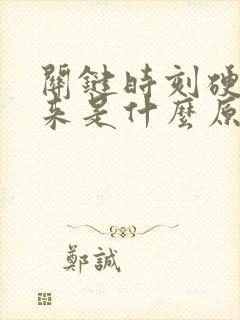 關鍵時刻硬
來是什麼原
鄭誠